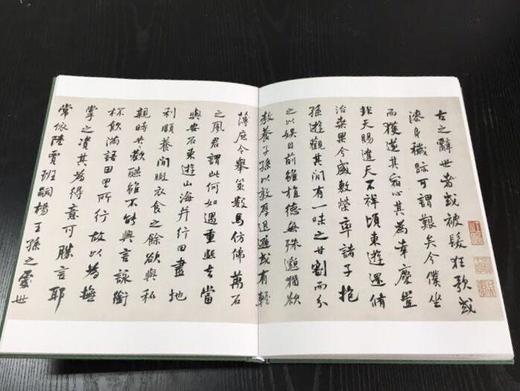 古之辭世者或被髮狂歌或
汙身穢跡可謂艱矣今僕坐
而獲逸其宿心其為幸慶豈
非天賜違天不祥頃東遊還脩
治桑果今盛敷榮率諸子抱
孫遊觀其間有一味之甘割而分
之以娛目前雖植德無殊邈猶欲
教養子孫以敦厚退遜或有輕
薄庶令舉策數馬仿佛萬石
之風君謂此何如遇重熙去當
與安石東遊山海并行田盡地
利頤養閒暇衣食之餘欲與私
親時共歡讌雖不能興言詠銜
杯飲滿語田里所行故以為撫
掌之資其為得意可勝言耶
常依陸賈班嗣楊王孫之處世